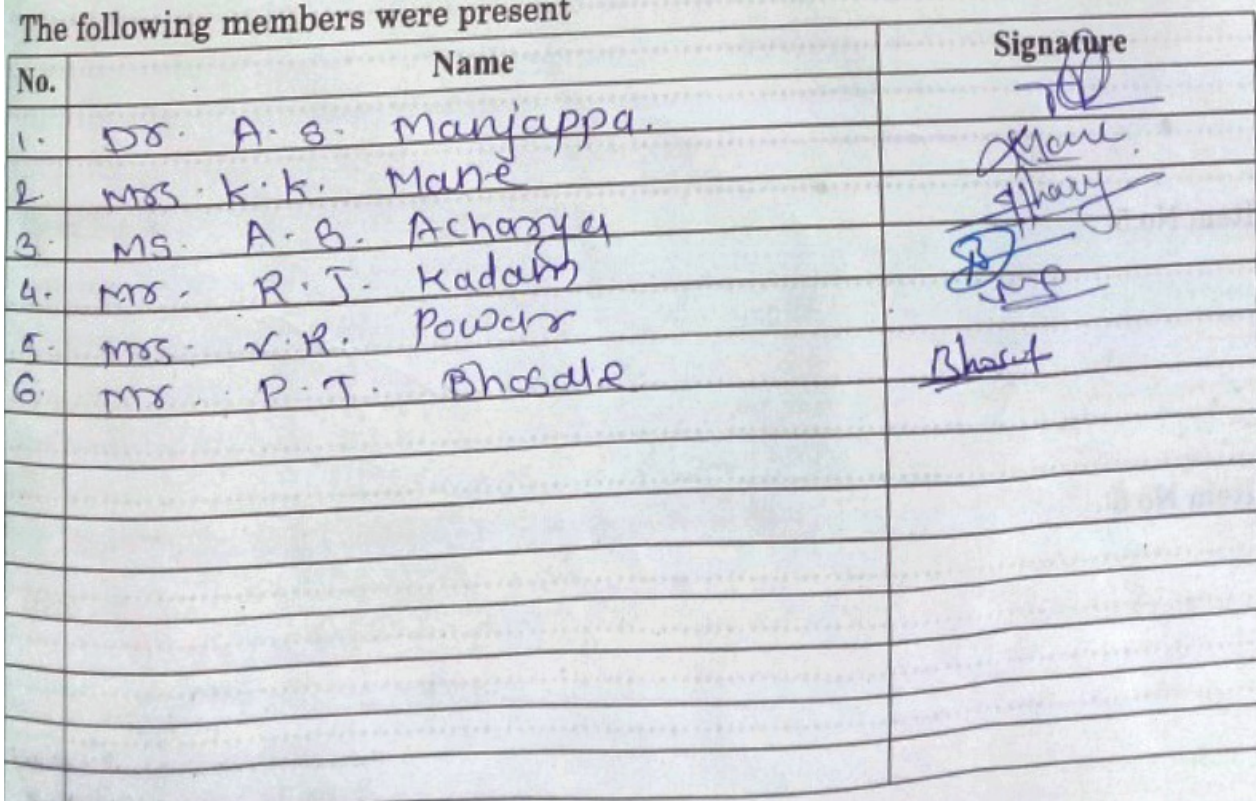 The following members were present
No. Name Signature
1. Dr. A. S. Manjappa.
2. Mrs. K. K. Mane
3. Ms. A. S. Acharya
4. Mr. R. J. Kadam
5. Mrs. V. R. Powar
6. Mr. P. T. Bhosale